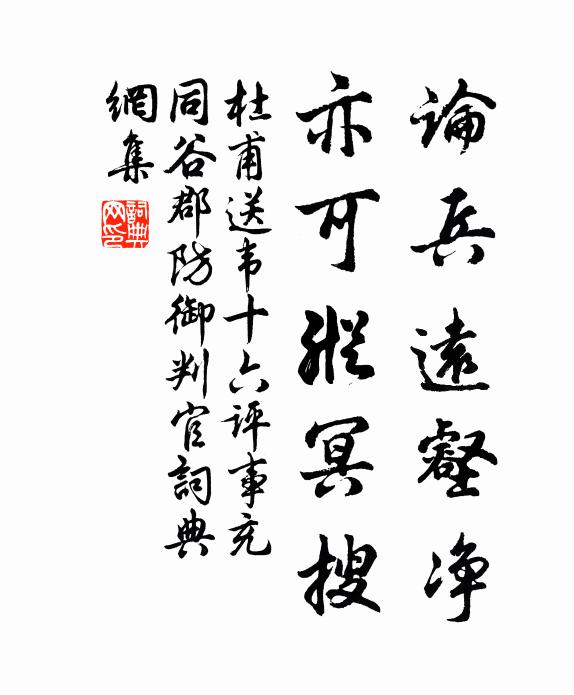 論兵遠壑淨
亦可縱冥搜
杜甫送韦十六评事充
同谷郡防御判官詞典
網集
詞典
网印